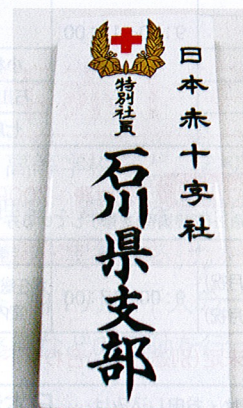 日本赤十字社
特別社員
石川県支部